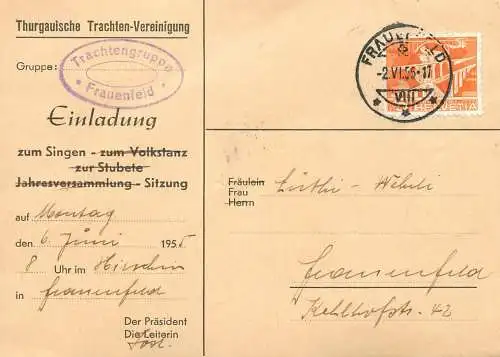 Thurgauische Trachten-Vereinigung
Gruppe:
Trachtengruppe
• Frauenfeld •
Einladung
zum Singen - zum Volkstanz
zur Stubete
Jahresversammlung - Sitzung
auf Montag
den 6. Juni 1955
8 Uhr im Hirschen
in Frauenfeld
Der Präsident
Die Leiterin
FRAUENFELD
-2.VI.55-17
VIII
HELVETIA
Fräulein
Frau
Herrn
Lüthi-Wehrli
Frauenfeld
Kehlhofstr. 42